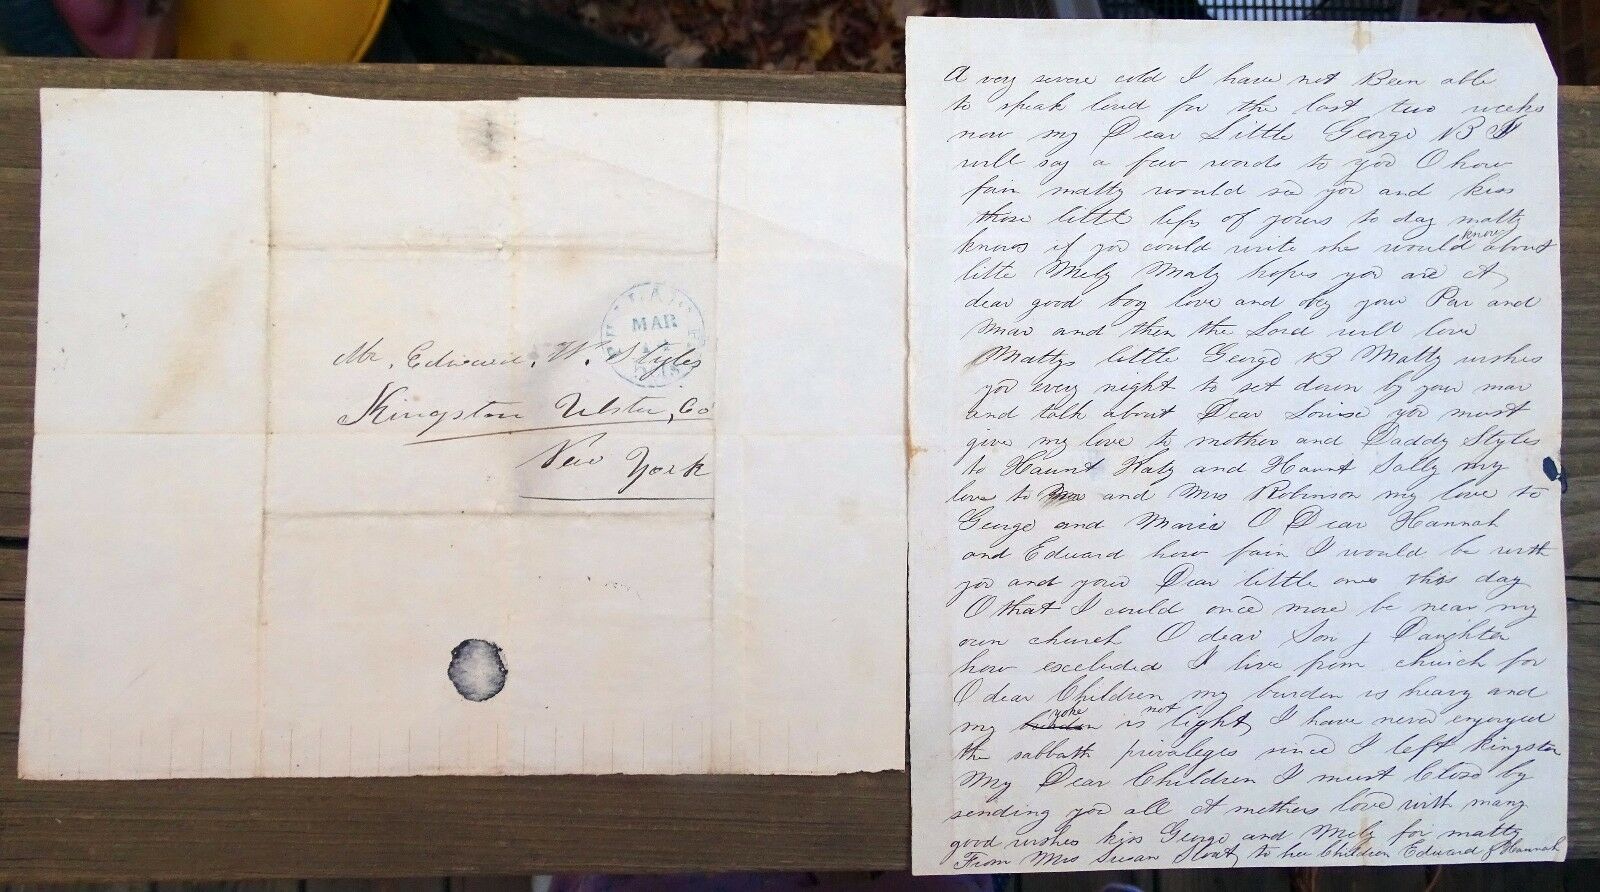 MAR
Mr. Edward. W. Styles
Kingston Ulster, Co
New York
A very severe cold I have not Been able
to speak loud for the last two weeks
now my Dear Little George B I
will say a few words to you O how
fain matty would see you and kiss
those little lips of yours to day matty
knows if you could write she would know about
little Mely Maty hopes you are A
dear good boy love and obey your Par and
Mar and then the Lord will love
Mattys little George B Matty wishes
you every night to set down by your mar
and talk about Dear Louise you must
give my love to mother and Daddy Styles
to Haunt Katy and Haunt Sally my
love to and Mrs Robinson my love to
George and Maria O Dear Hannah
and Edward how fain I would be with
you and your Dear little ones this day
O that I could once more be near my
own church O dear Son & Daughter
how excluded I live from church for
O dear Children my burden is heavy and
my burden yoke is not light I have never enjoyed
the sabbath privaleges since I left Kingston
My Dear Children I must Close by
sending you all A mothers love with many
good wishes kiss George and Mely for matty
From Mrs Susan to her Children Edward & Hannah